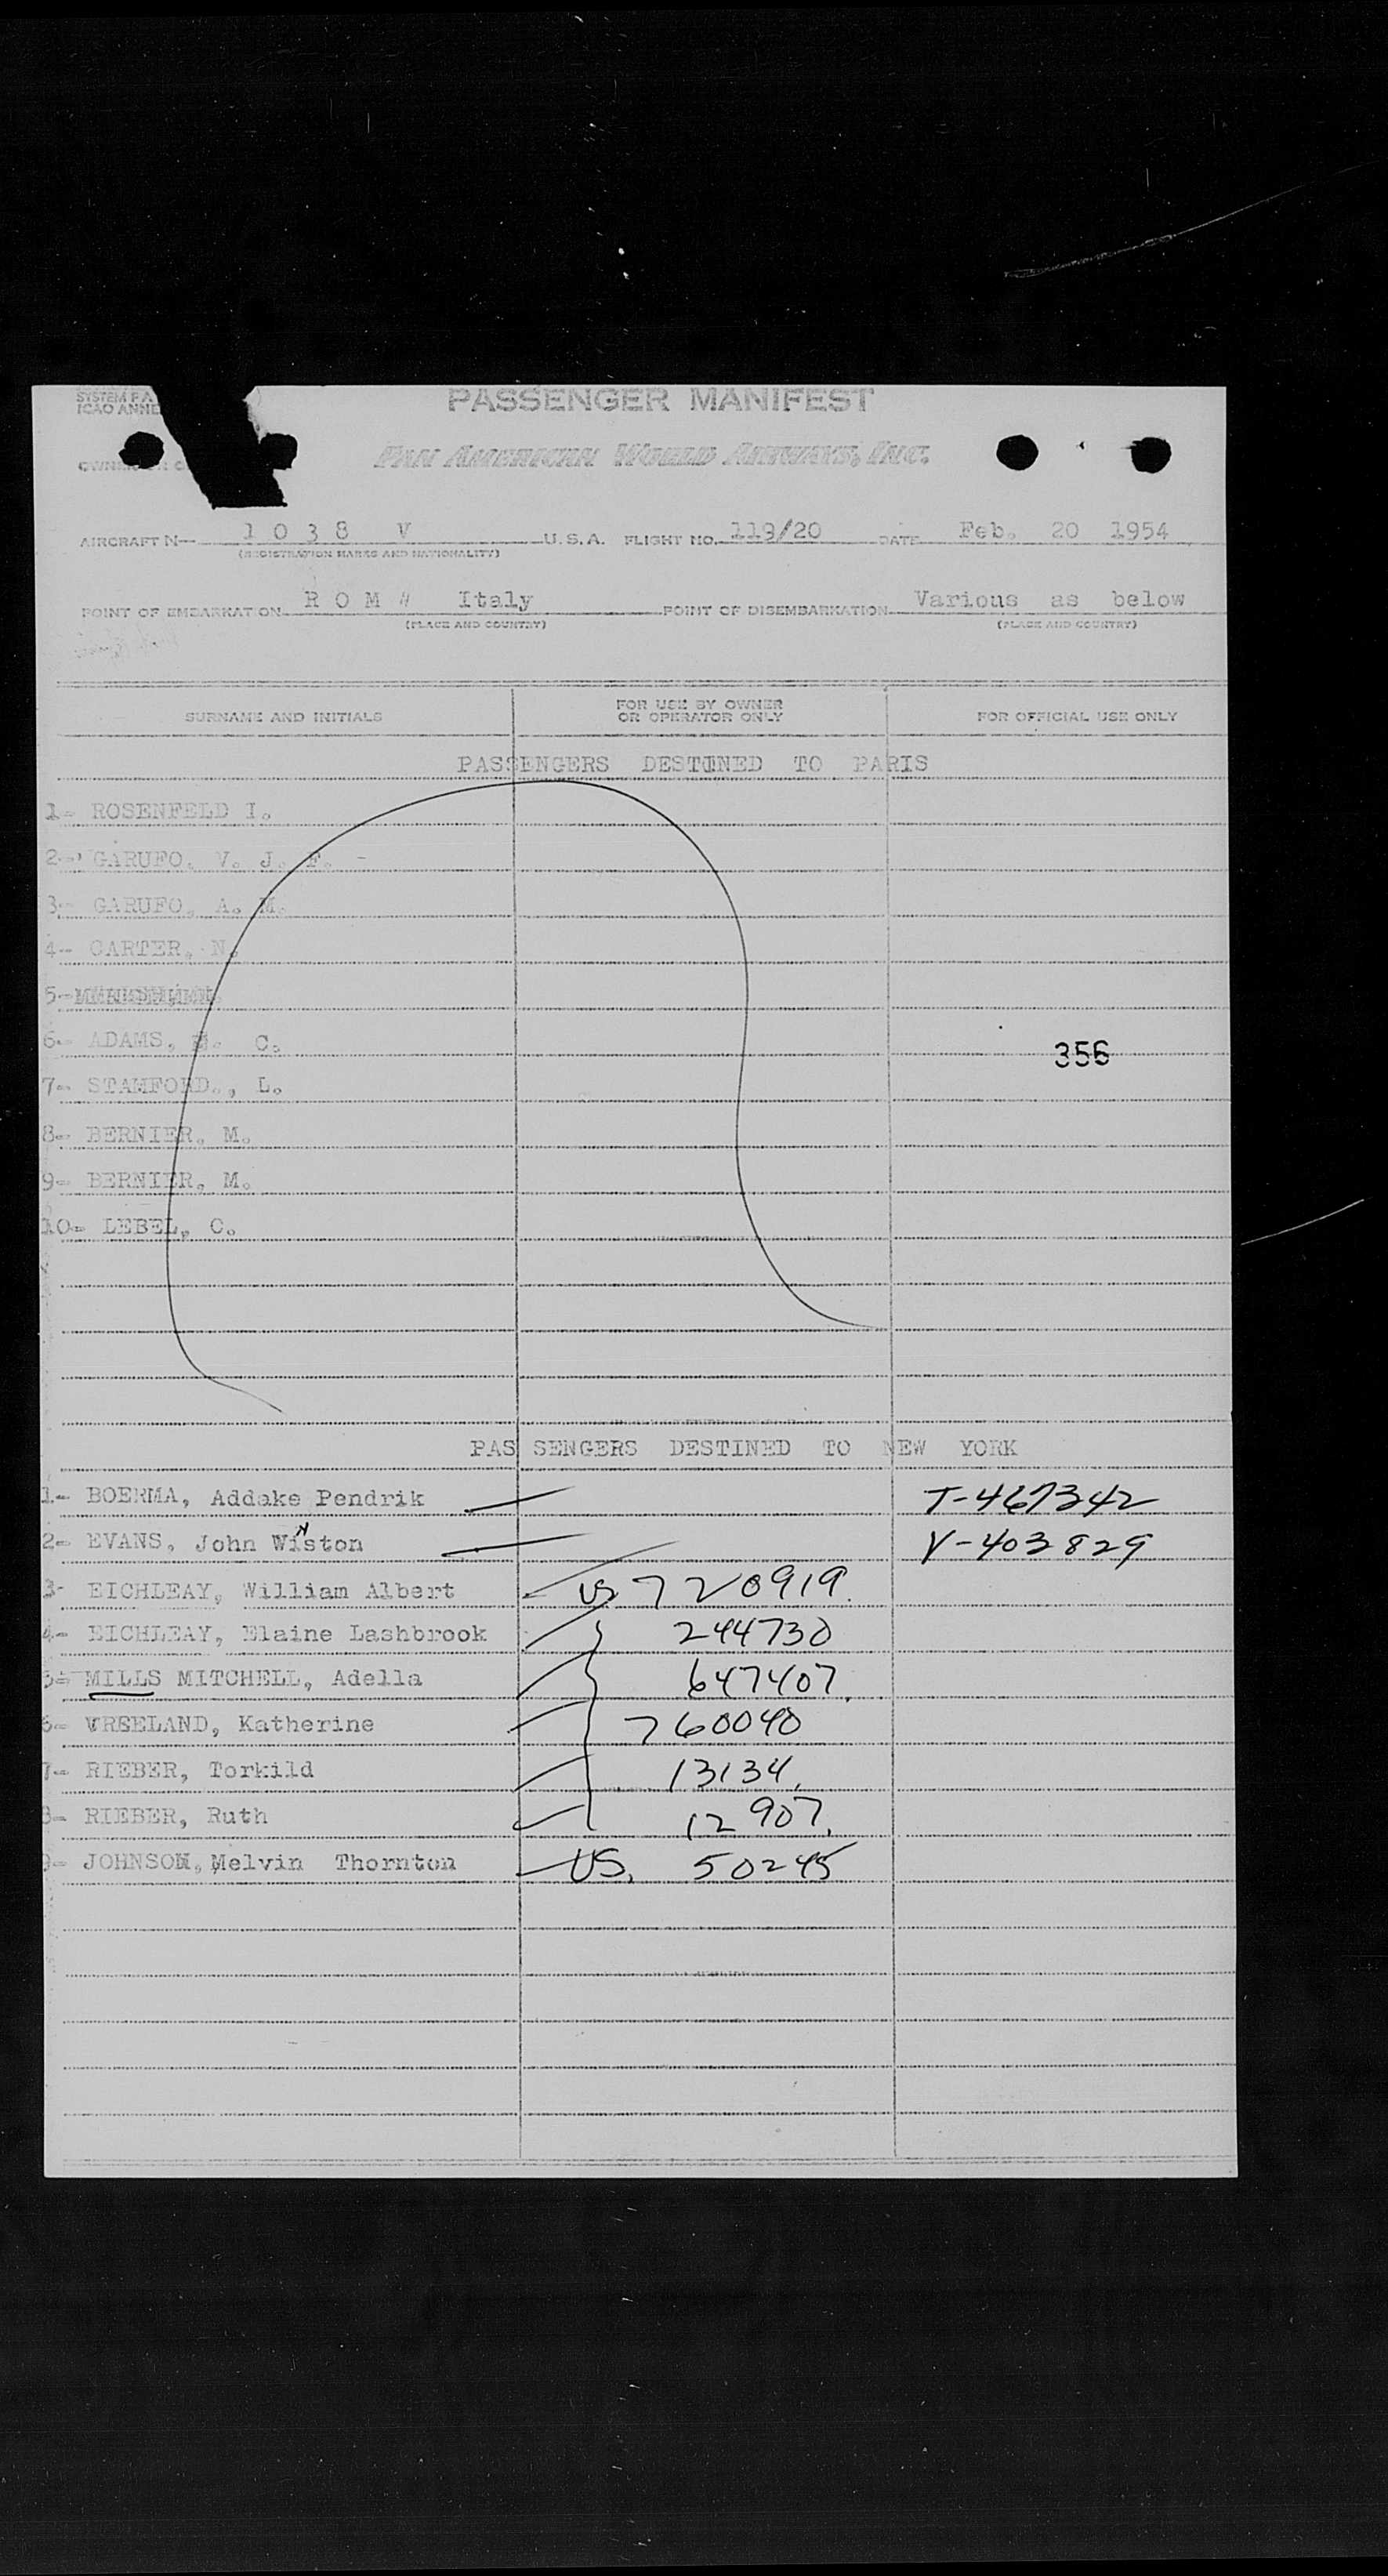 SYSTEM F A
ICAO ANNE
PASSENGER MANIFEST
PAN AMERICAN WORLD AIRWAYS, INC.
AIRCRAFT N— 1 0 3 8 V U. S. A. FLIGHT NO. 119/20 DATE Feb. 20 1954
(REGISTRATION MARKS AND NATIONALITY)
POINT OF EMBARKATION R O M A Italy POINT OF DISEMBARKATION Various as below
(PLACE AND COUNTRY) (PLACE AND COUNTRY)
SURNAME AND INITIALS FOR USE BY OWNER OR OPERATOR ONLY FOR OFFICIAL USE ONLY
PASSENGERS DESTINED TO PARIS
1- ROSENFELD I.
2- GARUFO, V. J. F. -
3- GARUFO, A. M.
4- CARTER, N.
5-
6- ADAMS, C.
356
7- STAMFORD., L.
8- BERNIER, M.
9- BERNIER, M.
10- LEBEL, C.
PASSENGERS DESTINED TO NEW YORK
1- BOERMA, Addake Pendrik T-467342
2- EVANS, John WiNston V-403829
3- EICHLEAY, William Albert US 720919.
4- EICHLEAY, Elaine Lashbrook 244730
5- MILLS MITCHELL, Adella 647407.
6- VREELAND, Katherine 760040
7- RIEBER, Torkild 13134.
8- RIEBER, Ruth 12907.
9- JOHNSON, Melvin Thornton US. 50245